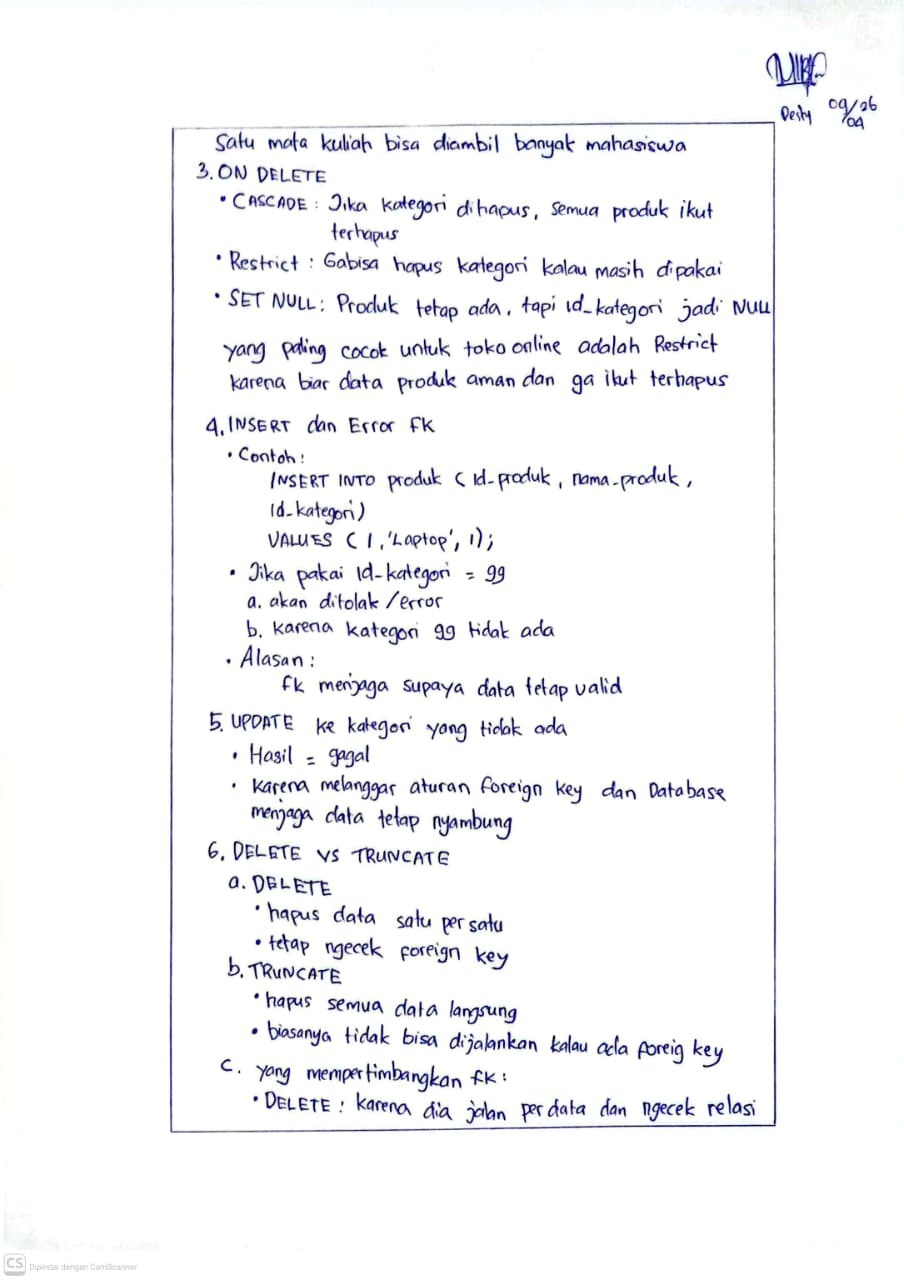 Desty 09/26
/04
Satu mata kuliah bisa diambil banyak mahasiswa
3. ON DELETE
• CASCADE : Jika kategori dihapus, semua produk ikut
terhapus
• Restrict : Gabisa hapus kategori kalau masih dipakai
• SET NULL : Produk tetap ada, tapi id_kategori jadi NULL
yang paling cocok untuk toko online adalah Restrict
karena biar data produk aman dan ga ikut terhapus
4. INSERT dan Error FK
• Contoh :
INSERT INTO produk ( id-produk, nama-produk,
id-kategori)
VALUES ( 1, 'Laptop', 1);
• Jika pakai id-kategori = 99
a. akan ditolak /error
b. karena kategori 99 tidak ada
• Alasan :
fk menjaga supaya data tetap valid
5. UPDATE ke kategori yang tidak ada
• Hasil = gagal
• karena melanggar aturan foreign key dan Database
menjaga data tetap nyambung
6. DELETE VS TRUNCATE
a. DELETE
• hapus data satu per satu
• tetap ngecek foreign key
b. TRUNCATE
• hapus semua data langsung
• biasanya tidak bisa dijalankan kalau ada foreig key
c. yang mempertimbangkan fk :
• DELETE : karena dia jalan per data dan ngecek relasi
CS Dipindai dengan CamScanner